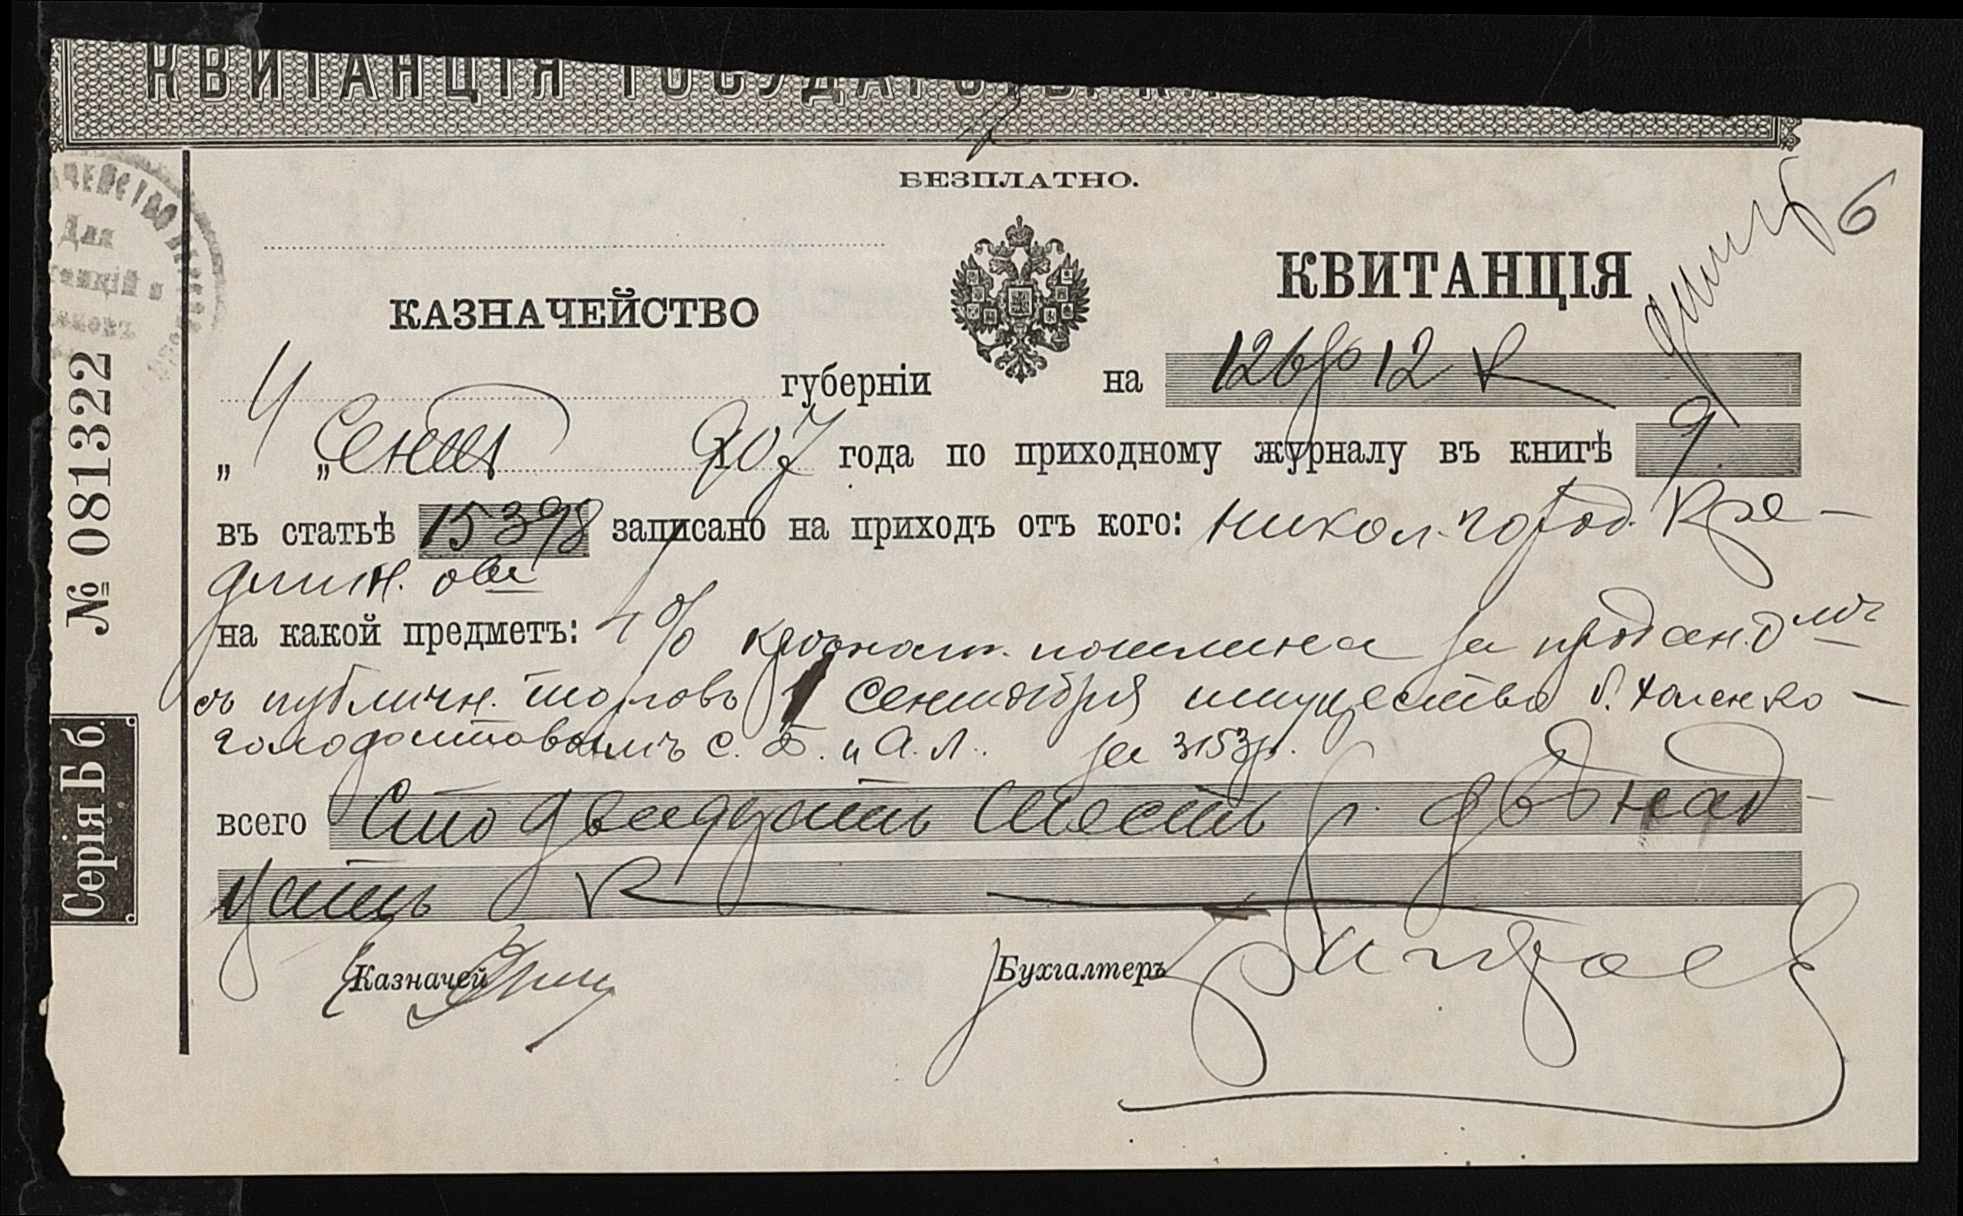 КВИТАНЦІЯ ГОСУДАРСТВ
БЕЗПЛАТНО.
КАЗНАЧЕЙСТВО
КВИТАНЦІЯ
губерніи
на 126 р 12 к
6
„ 4 „ Сент 1907 года по приходному журналу въ книгѣ 9
въ статьѣ 15398 записано на приходъ отъ кого: Никол. город. Кре-
дитн. общ
на какой предметъ: 4% крѣпостн. пошлина за продан.
съ публичн. торговъ 1 сентября имущество
С. и А. Л. за 3153 р.
всего Сто двадцать шесть р. двѣнад-
цать к
Казначей
Бухгалтеръ
№ 081322
Серія Б б.
Для